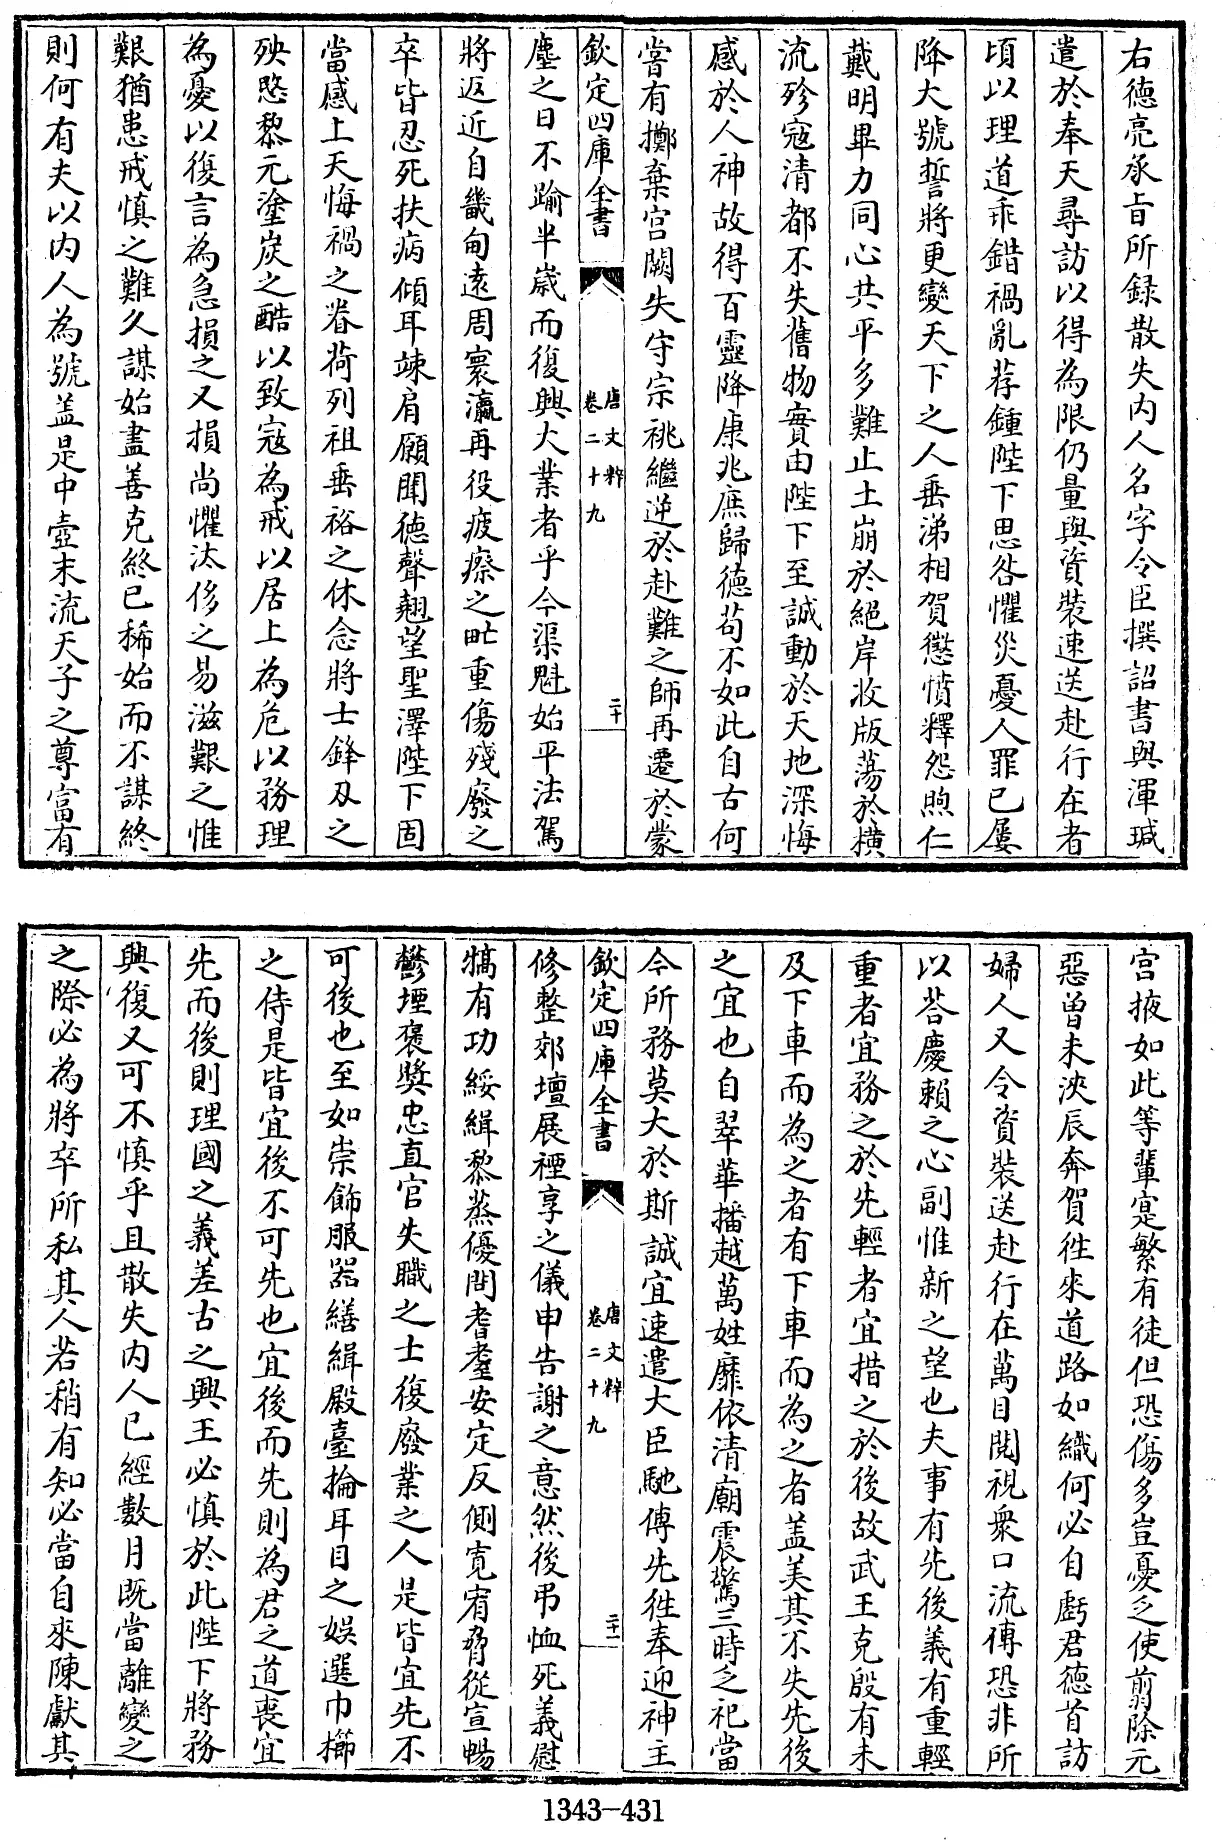 右德亮承㫖所録散失内人名字令臣撰詔書與渾瑊
遣於奉天尋訪以得為限仍量與資裝速送赴行在者
頃以理道乖錯禍亂荐鍾陛下思咎懼災憂人罪已屢
降大號誓將更變天下之人垂涕相賀懲憤釋怨煦仁
戴明畢力同心共平多難止土崩於絕岸收版蕩於横
流殄宼清都不失舊物實由陛下至誠動於天地深悔
感於人神故得百靈降康兆庶歸徳苟不如此自古何
嘗有擲棄宫闕失守宗祧繼逆於赴難之師再遷於蒙
欽定四庫全書
唐文粹
卷二十九
二十
塵之日不踰半嵗而復興大業者乎今渠魁始平法駕
將返近自畿甸逺周寰瀛再役疲瘵之甿重傷殘廢之
卒皆忍死扶病傾耳竦肩願聞徳聲翹望聖澤陛下固
當感上天悔禍之眷荷列祖垂裕之休念將士鋒刄之
殃愍黎元塗炭之酷以致寇為戒以居上為危以務理
為憂以復言為急損之又損尚懼汰侈之易滋艱之惟
艱猶患戒慎之難久謀始盡善克終已稀始而不謀終
則何有夫以内人為號盖是中壼末流天子之尊富有
宫掖如此等輩寔繁有徒但恐傷多豈憂乏使翦除元
惡曾未浹辰奔賀徃來道路如織何必自虧君德首訪
婦人又令資裝送赴行在萬目閱視衆口流傳恐非所
以荅慶賴之心副惟新之望也夫事有先後義有重輕
重者宜務之於先輕者宜措之於後故武王克殷有未
及下車而為之者有下車而為之者盖美其不失先後
之宜也自翠華播越萬姓靡依清廟震驚三時乏祀當
今所務莫大於斯誠宜速遣大臣馳傳先徃奉迎神主
欽定四庫全書
唐文粹
卷二十九
二十一
修整郊壇展禋享之儀申告謝之意然後弔恤死義慰
犒有功綏緝黎蒸優問耆耋安定反側寛宥脅從宣暢
鬱堙褒奬忠直官失職之士復廢業之人是皆宜先不
可後也至如崇飾服器繕緝殿臺掄耳目之娱選巾櫛
之侍是皆宜後不可先也宜後而先則為君之道喪宜
先而後則理國之義差古之興王必慎於此陛下將務
興復又可不慎乎且散失内人已經數月既當離變之
之際必為將卒所私其人若稍有知必當自來陳獻其
1343-431